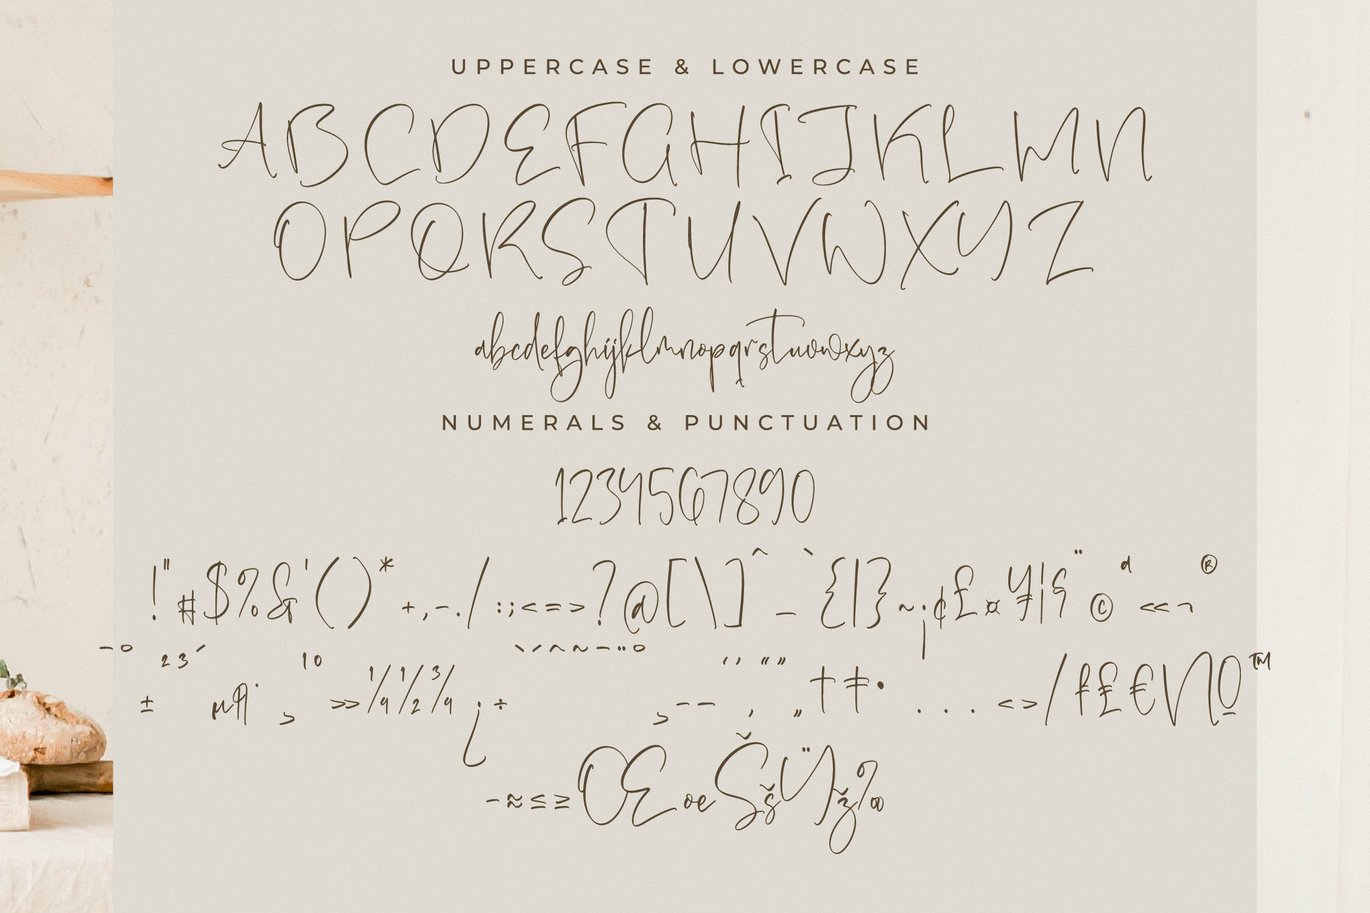 UPPERCASE & LOWERCASE
ABCDEFGHIJKLMN
OPQRSTUVWXYZ
abcdefghijklmnopqrstuvwxyz
NUMERALS & PUNCTUATION
1234567890
!"#$%&'()*+,-./:;<=>?@[\]^_`{|}~¡¢£¤¥¦§¨©ª«¬®
¯°±²³´µ¶·¸¹º»¼½¾¿÷ˋˊˆ˜¯¨°¸–—‘’‚“”„†‡•...‹›⁄₣₤€№™
−≈≤≥ŒœŠšŸž‰